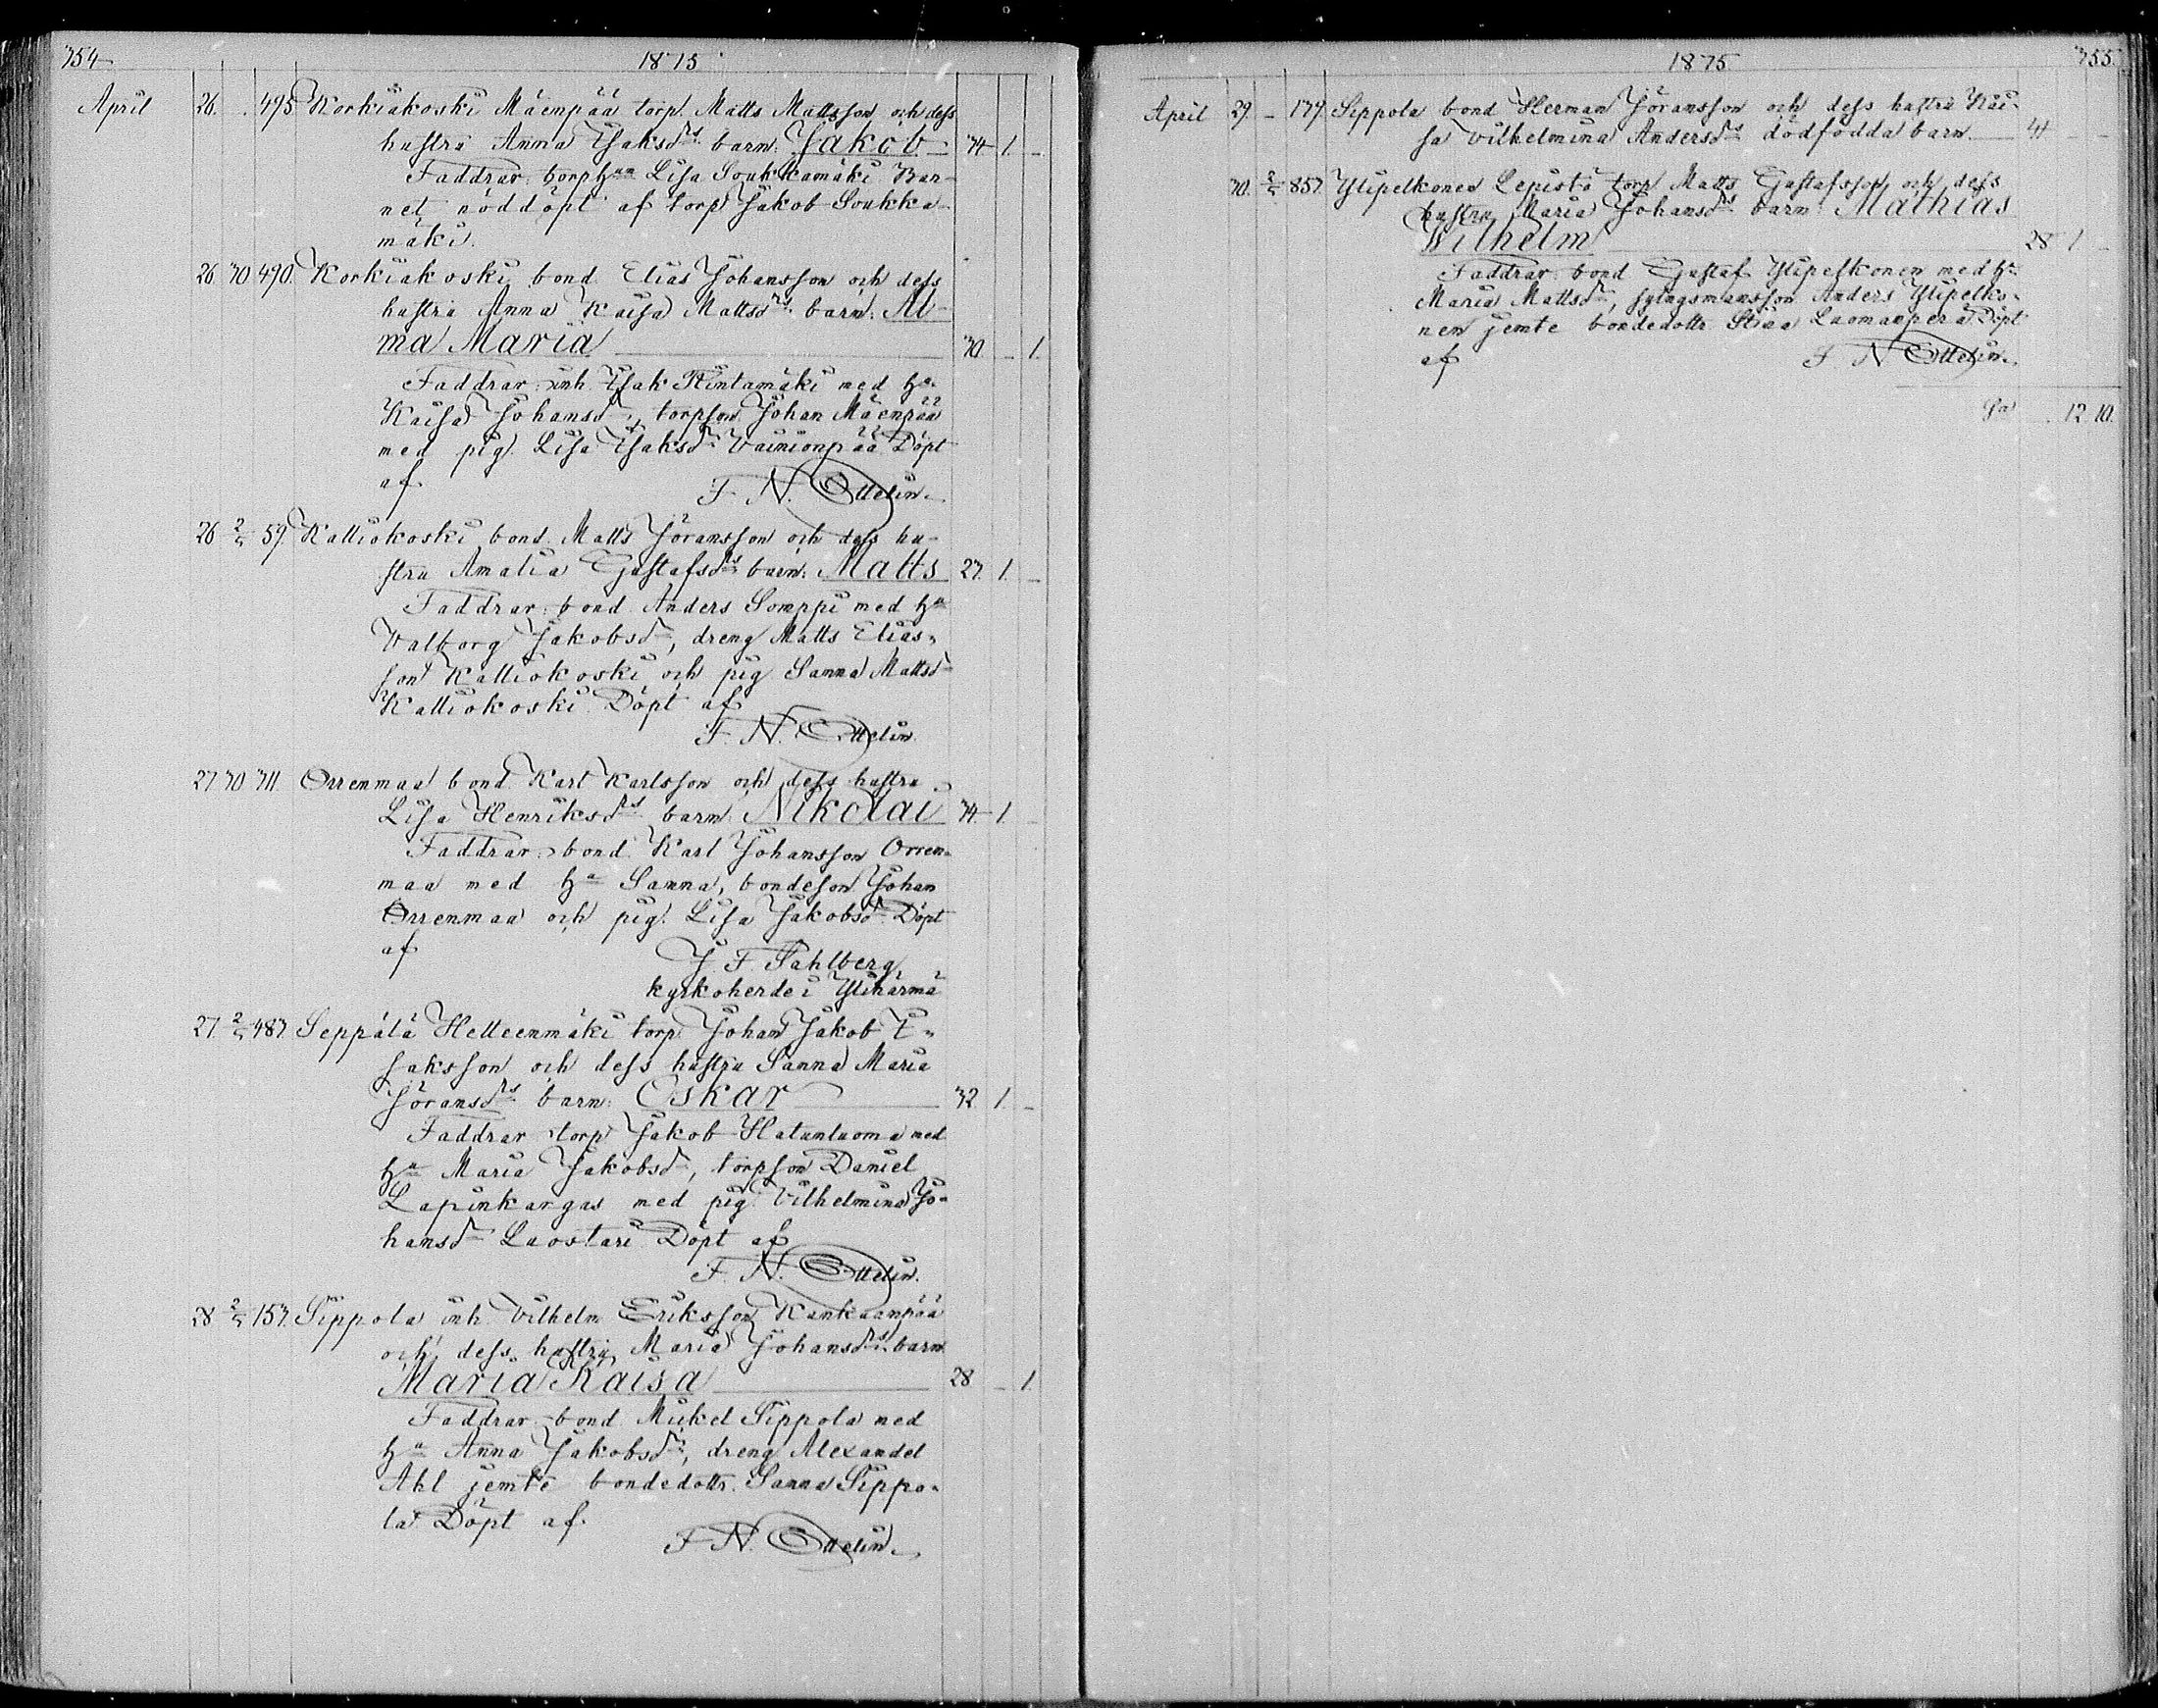 354 1875
April 26. . 495. Korkiakoski Mäenpää torp. Matts Mattsson och dess
hustru Anna Isaksdrs barn: Jakob 34 1. –
Faddrar: torphun Lisa Soukkamäki Bar-
net nöddöpt af torp. Jakob Soukka-
mäki.
26. 30. 490. Korkiakoski bond. Elias Johansson och dess
hustru Anna Kaisa Mattsdrs barn: Al-
ma Maria 30. – 1.
Faddrar: inh. Isak Rintamäki med hu
Kaisa Johansdr, torpson Johan Mäenpää
med pig. Lisa Isaksdr Vainionpää Döpt
af F. N. Ottelin.
26 2/5 59. Kalliokoski bond. Matts Jöransson och dess hu-
stru Amalia Gustafsdrs barn: Matts 27. 1. –
Faddrar: bond. Anders Somppi med hu
Valborg Jakobsdr, dreng Matts Elias-
son Kalliokoski och pig. Sanna Mattsdr
Kalliokoski. Döpt af
F. N. Ottelin.
27 30 311. Orrenmaa bond. Karl Karlsson och dess hustru
Lisa Henriksdrs barn: Nikolai 34 1.
Faddrar: bond. Karl Johansson Orren-
maa med hu Sanna, bondeson Johan
Orrenmaa och pig. Lisa Jakobsdr Döpt
af J. F. Pahlberg,
kyrkoherde i Ylihärmä
27. 2/5 487. Seppälä Hetteenmäki torp. Johan Jakob I-
saksson och dess hustru Sanna Maria
Jöransdrs barn: Oskar 32 1. –
Faddrar torp. Jakob Hatunluoma med
hu Maria Jakobsdr, torpson Daniel
Lapinkangas med pig. Vilhelmina Jo-
hansdr Luostari Döpt af
F. N. Ottelin.
28 2/5 153. Sippola inh. Vilhelm Eriksson Kankaanpää
och dess hustru Maria Johansdrs barn
Maria Kaisa 28 – 1.
Faddrar: bond. Mikel Sippola med
hu Anna Jakobsdr, dreng Alexandel
Ahl jemte bondedottr. Sanna Sippo-
la Döpt af.
F. N. Ottelin.
1875 355.
April 29. – 174. Sippola bond. Herman Jöransson och dess hustru Kai-
sa Vilhelmina Andersdrs dödfödda barn 41 – –
30. 2/5 857. Ylipelkonen Lepistö torp. Matts Gustafsson och dess
hustru Maria Johansdrs barn: Mathias
Wilhelm 28 1. –
Faddrar: bond. Gustaf Ylipelkonen med hu
Maria Mattsdr, sytingsmansson Anders Ylipelko-
nen jemte bondedottr. Stina Luomanperä Döpt
af F. N. Ottelin.
Sa . 12. 10.